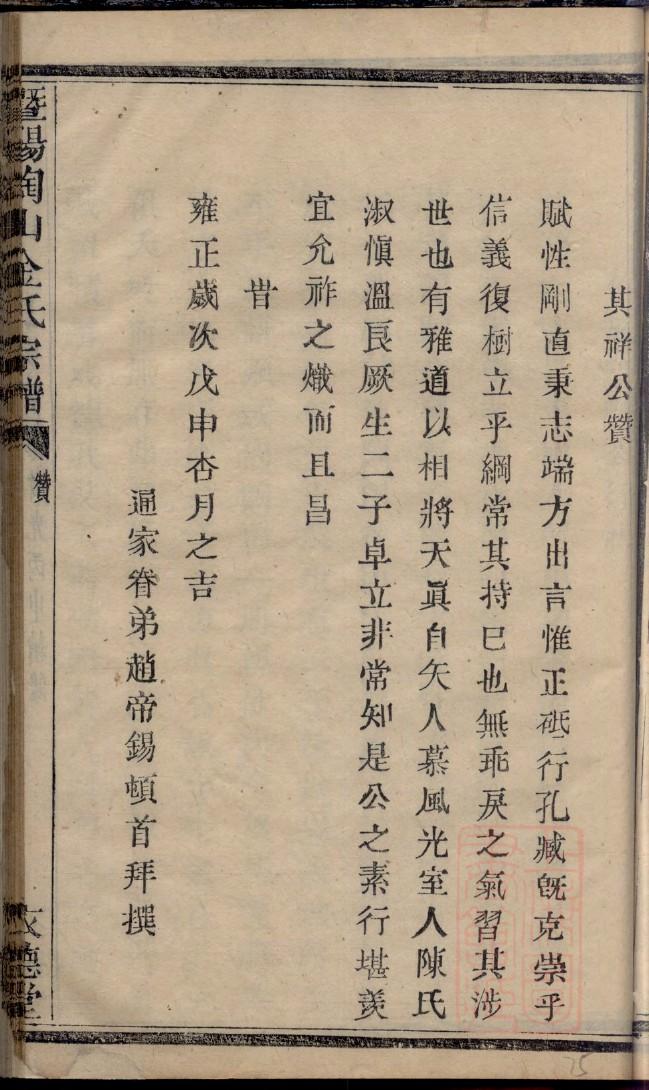 其祥公贊
賦性剛直秉志端方出言惟正砥行孔臧旣克崇乎
信義復樹立乎綱常其持已也無乖戾之氣習其涉
世也有雅道以相將天眞自矢人慕風光室人陳氏
淑愼溫良厥生二子卓立非常知是公之素行堪羨
宜允祚之熾而且昌
旹
雍正歲次戊申杏月之吉
通家眷弟趙帝錫頓首拜撰
暨陽陶山金氏宗譜
贊
文德堂
75